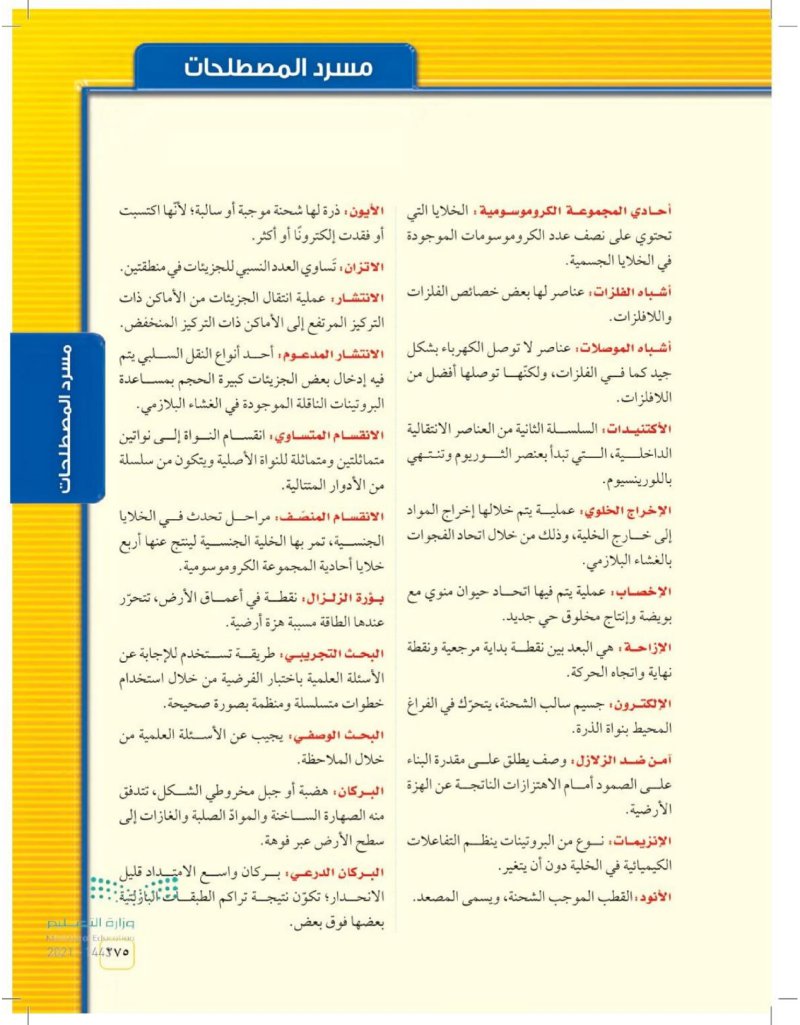 مسرد المصطلحات
أحادي المجموعة الكروموسومية: الخلايا التي
تحتوي على نصف عدد الكروموسومات الموجودة
في الخلايا الجسمية.
أشباه الفلزات: عناصر لها بعض خصائص الفلزات
واللافلزات.
أشباه الموصلات: عناصر لا توصل الكهرباء بشكل
جيد كما في الفلزات، ولكنّها توصلها أفضل من
اللافلزات.
الأكتنيدات: السلسلة الثانية من العناصر الانتقالية
الداخلية، التي تبدأ بعنصر الثوريوم وتنتهي
باللورينسيوم.
الإخراج الخلوي: عملية يتم خلالها إخراج المواد
إلى خارج الخلية، وذلك من خلال اتحاد الفجوات
بالغشاء البلازمي.
الإخصاب: عملية يتم فيها اتحاد حيوان منوي مع
بويضة وإنتاج مخلوق حي جديد.
الإزاحة: هي البعد بين نقطة بداية مرجعية ونقطة
نهاية واتجاه الحركة.
الإلكترون: جسيم سالب الشحنة، يتحرّك في الفراغ
المحيط بنواة الذرة.
آمن ضد الزلازل: وصف يطلق على مقدرة البناء
على الصمود أمام الاهتزازات الناتجة عن الهزة
الأرضية.
الإنزيمات: نوع من البروتينات ينظم التفاعلات
الكيميائية في الخلية دون أن يتغير.
الأنود: القطب الموجب الشحنة، ويسمى المصعد.
الأيون: ذرة لها شحنة موجبة أو سالبة؛ لأنّها اكتسبت
أو فقدت إلكترونًا أو أكثر.
الاتزان: تَساوي العدد النسبي للجزيئات في منطقتين.
الانتشار: عملية انتقال الجزيئات من الأماكن ذات
التركيز المرتفع إلى الأماكن ذات التركيز المنخفض.
الانتشار المدعوم: أحد أنواع النقل السلبي يتم
فيه إدخال بعض الجزيئات كبيرة الحجم بمساعدة
البروتينات الناقلة الموجودة في الغشاء البلازمي.
الانقسام المتساوي: انقسام النواة إلى نواتين
متماثلتين ومتماثلة للنواة الأصلية ويتكون من سلسلة
من الأدوار المتتالية.
الانقسام المنصّف: مراحل تحدث في الخلايا
الجنسية، تمر بها الخلية الجنسية لينتج عنها أربع
خلايا أحادية المجموعة الكروموسومية.
بؤرة الزلزال: نقطة في أعماق الأرض، تتحرّر
عندها الطاقة مسببة هزة أرضية.
البحث التجريبي: طريقة تستخدم للإجابة عن
الأسئلة العلمية باختبار الفرضية من خلال استخدام
خطوات متسلسلة ومنظمة بصورة صحيحة.
البحث الوصفي: يجيب عن الأسئلة العلمية من
خلال الملاحظة.
البركان: هضبة أو جبل مخروطي الشكل، تتدفق
منه الصهارة الساخنة والموادّ الصلبة والغازات إلى
سطح الأرض عبر فوهة.
البركان الدرعي: بركان واسع الامتداد قليل
الانحدار؛ تكوّن نتيجة تراكم الطبقات البازلتية
بعضها فوق بعض.
مسرد المصطلحات
وزارة التعليم
Ministry of Education
2021
٢٧٥